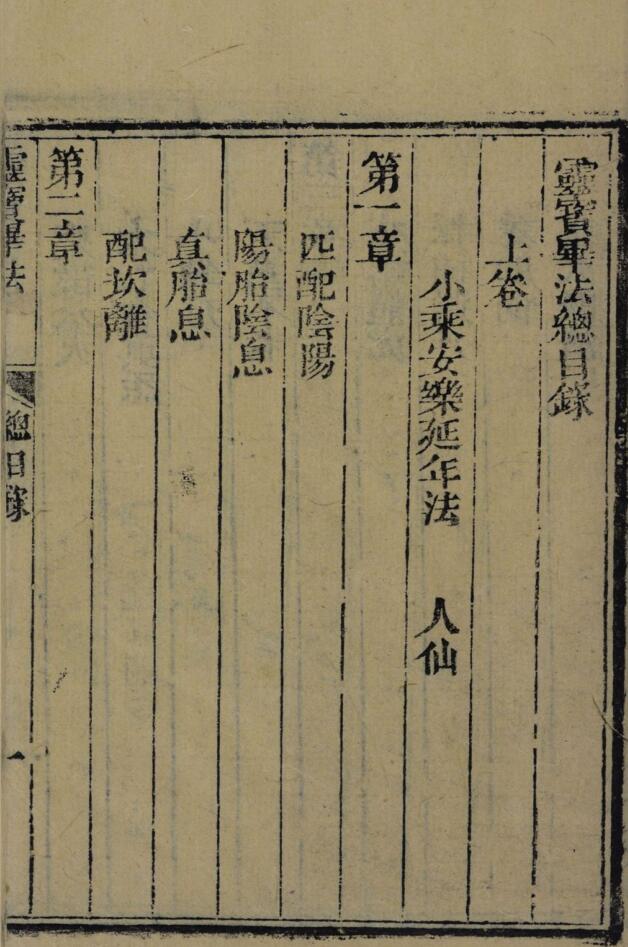 靈寳畢法總目錄
上卷
小乘安樂延年法　人仙
第一章
匹配陰陽
陽胎陰息
眞胎息
配坎離
第二章
靈寳畢法
總目錄
一